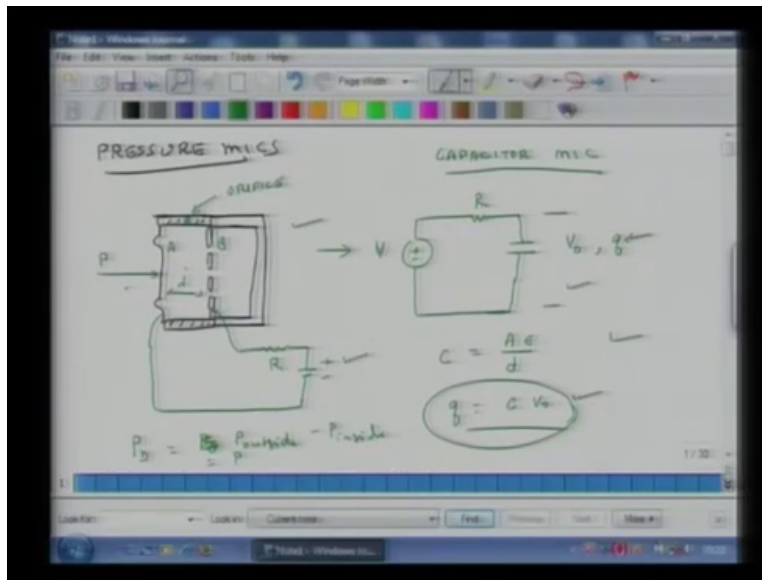 Note1 - Windows Journal
File Edit View Insert Actions Tools Help
Page Width
PRESSURE MICS
CAPACITOR MIC
ORIFICE
R
A B
P
d
V
V₀, q
R
+
-
C = Aε/d
q = C V₀
P_D = P_outside - P_inside
= P
1 / 30
Look for: Look in: Current note Find
Note1 - Windows Jo...